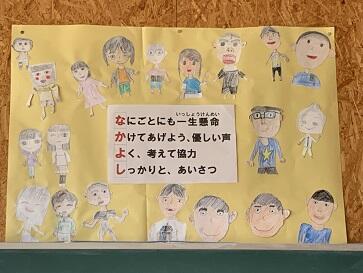 いっしょうけんめい
なにごとにも一生懸命
かけてあげよう、優しい声
よく、考えて協力
しっかりと、あいさつ